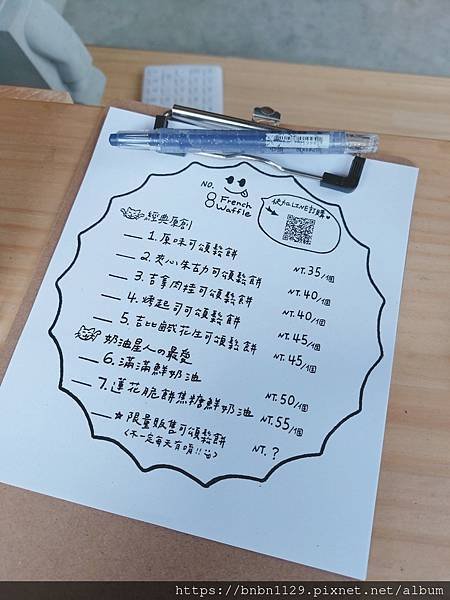 NO.
8 French Waffle
快加LINE訂購
經典原創
1. 原味可頌鬆餅 NT.35/個
2. 夾心朱古力可頌鬆餅 NT.40/個
3. 吉拿肉桂可頌鬆餅 NT.40/個
4. 烤起司可頌鬆餅 NT.45/個
5. 吉比鹹花生可頌鬆餅 NT.45/個
奶油星人の最愛
6. 滿滿鮮奶油 NT.50/個
7. 蓮花脆餅焦糖鮮奶油 NT.55/個
★限量販售可頌鬆餅 NT.?
(不一定每天有唷!!)
https://bnbn1129.pixnet.net/album